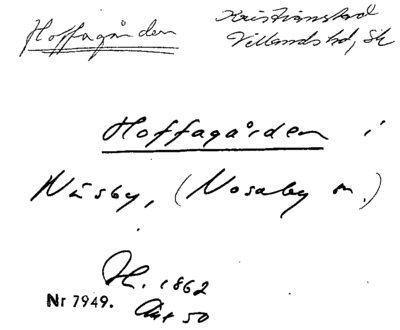 Hoffagården
Kristianstad
Villands hd, Sk
Hoffagården i
Näsby, (Nosaby sn.)
H. 1862
Nr 7949.
50